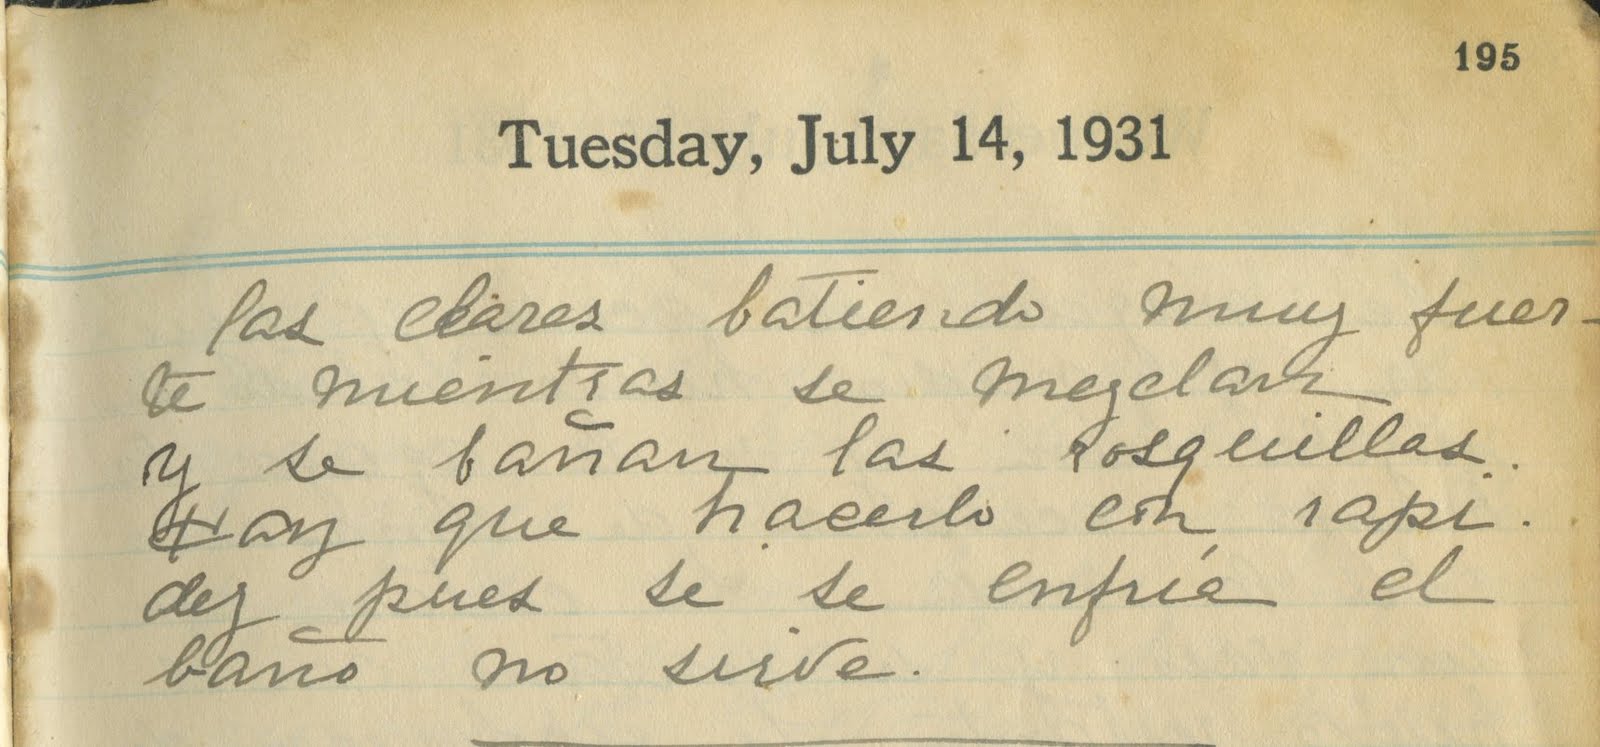 195
Tuesday, July 14, 1931
las clares batiendo muy fuer-
te mientras se mezclan
y se bañan las rosquillas.
Hay que hacerlo con rapi.
dez pues se se enfrie el
baño no sirve.